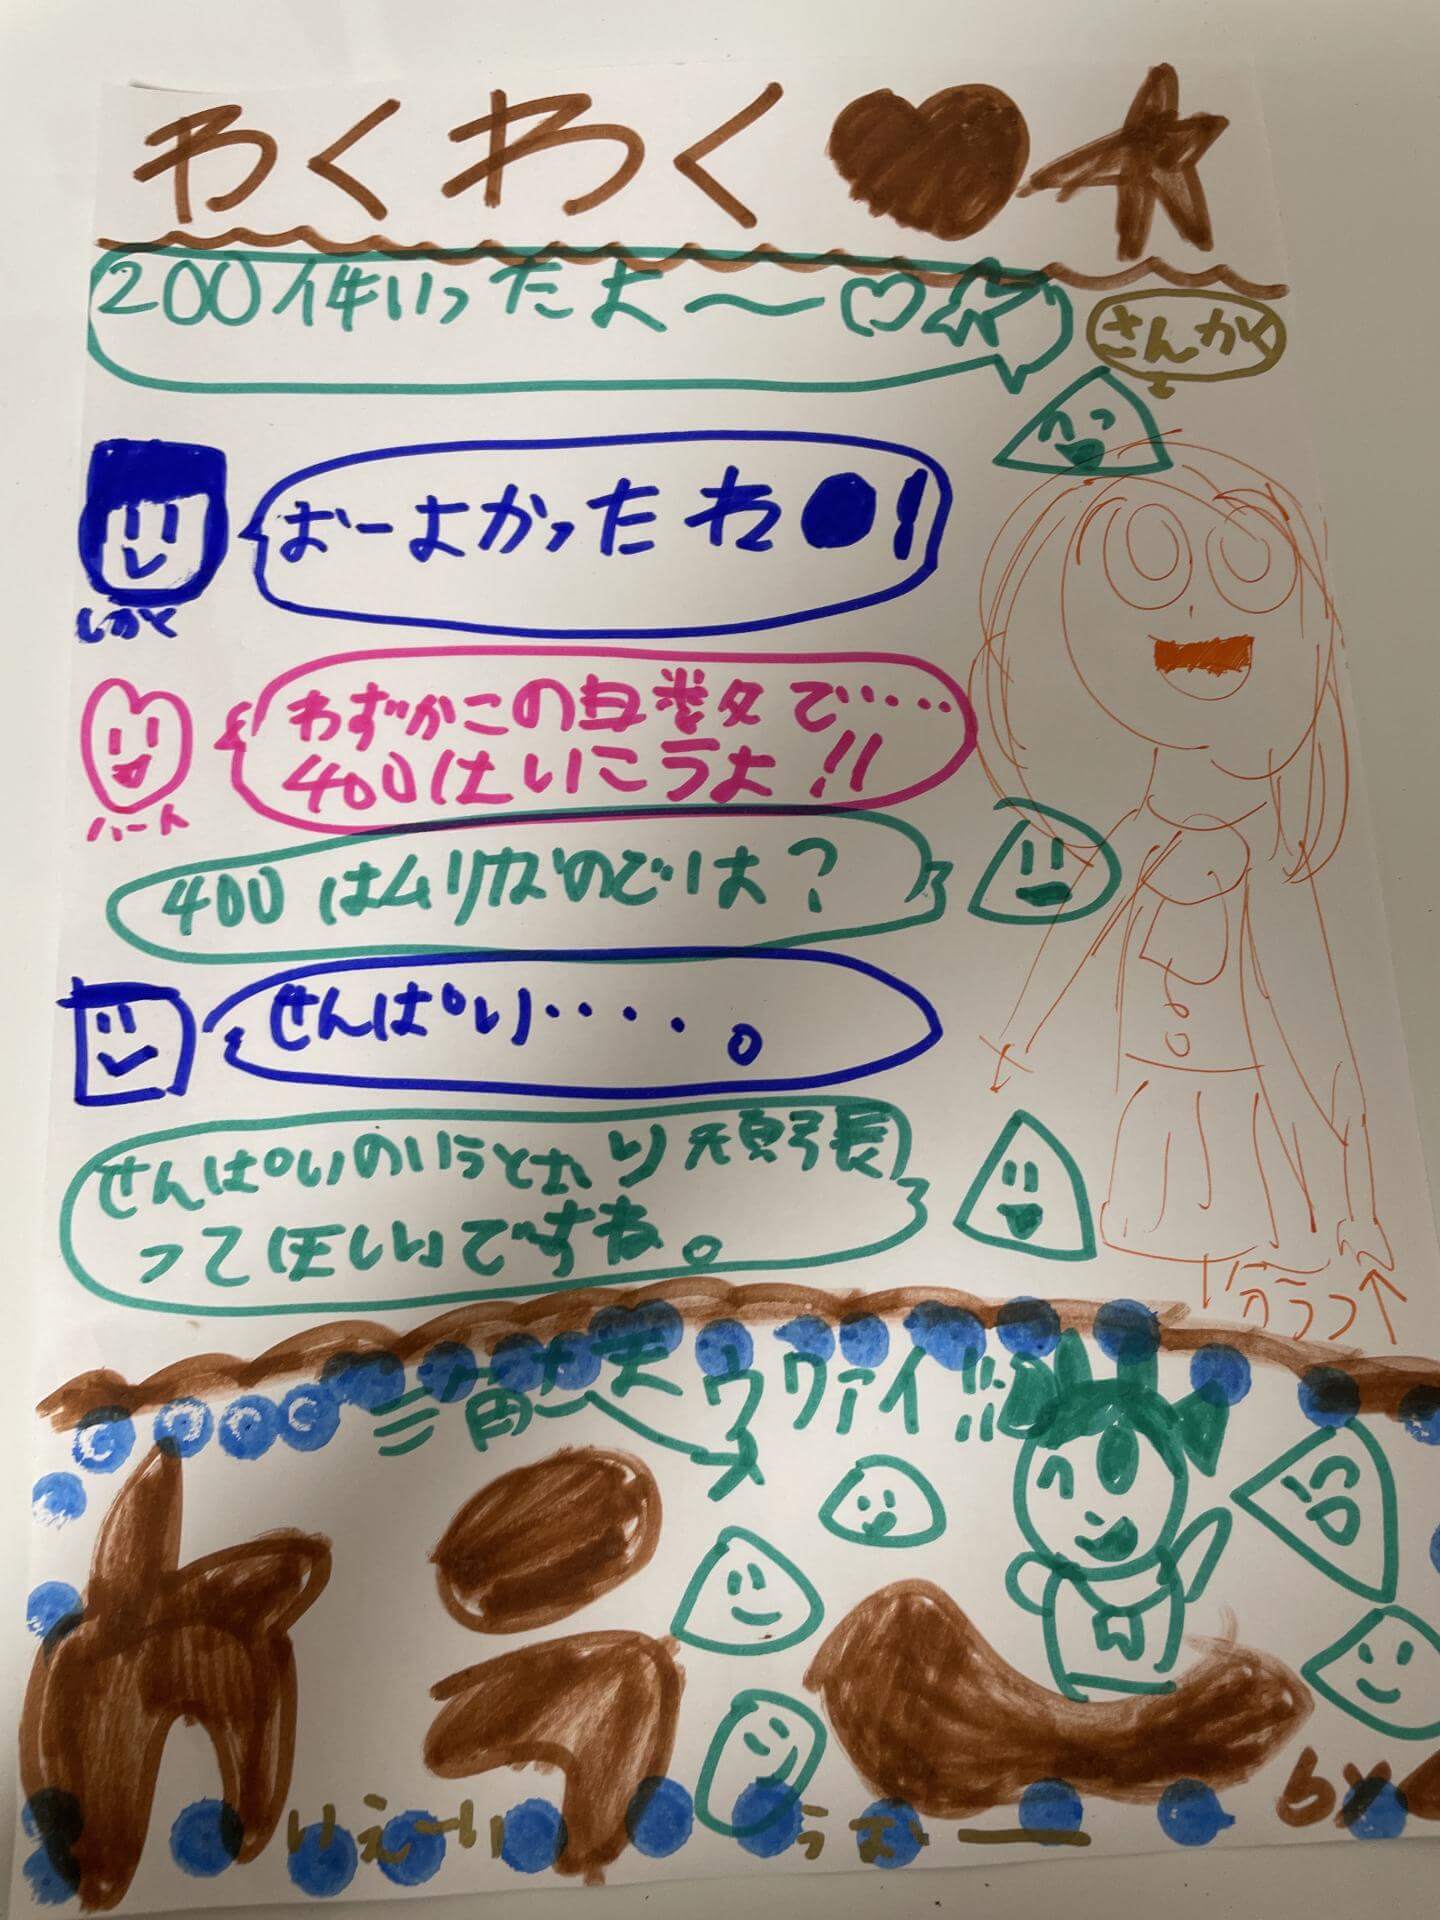 わくわく
200件いったよ〜♡☆
さんかく
おーよかったね●!
しかく
わずかこの日数で・・・・・
400はいこうよ!!
ハート
400はムリなのでは?
せんぱい・・・・。
せんぱいのいうとおり頑張
ってほしいですね。
カラフ↑
三角大天
ウワァイ!!!
カラ
いえーい
うお
by